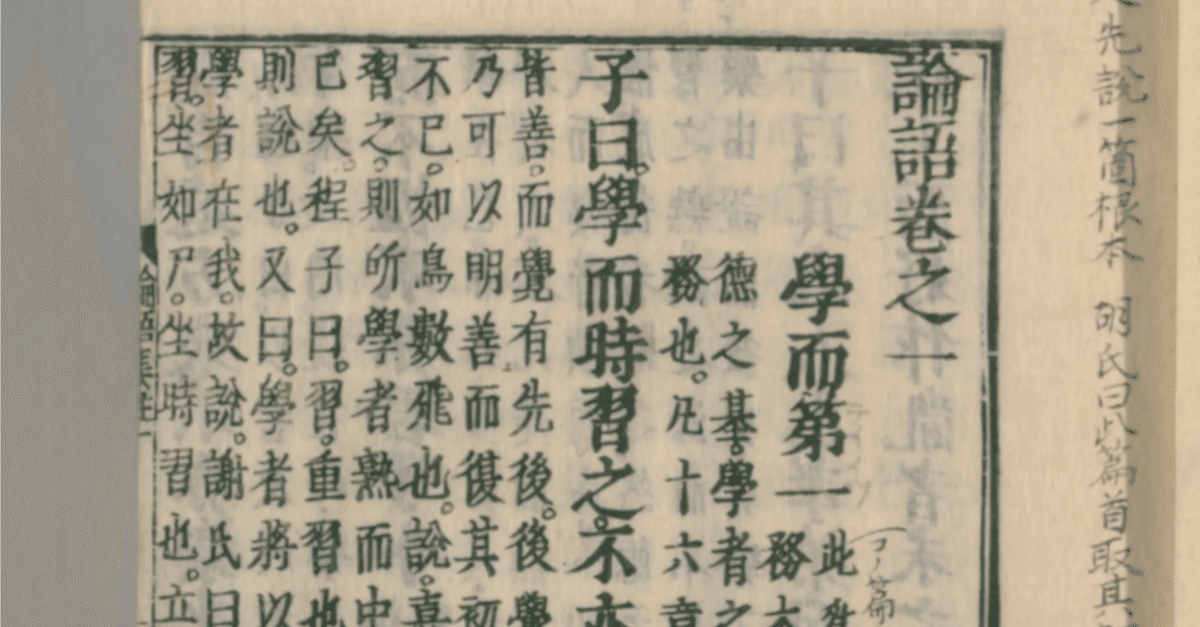 先說一箇根本 胡氏曰此篇首取其
論語卷之一
學而第一
此
務
德之基。學者之
務也。凡十六章
子曰。學而時習之。不亦
皆善。而覺有先後。後學
乃可以明善而復其初
不已。如鳥數飛也。說。喜
習之。則所學者熟而中
已矣。程子曰。習。重習也
則說也。又曰。學者將以
學者在我。故說。謝氏曰
習。坐如尸。坐時習也。立
論語集註